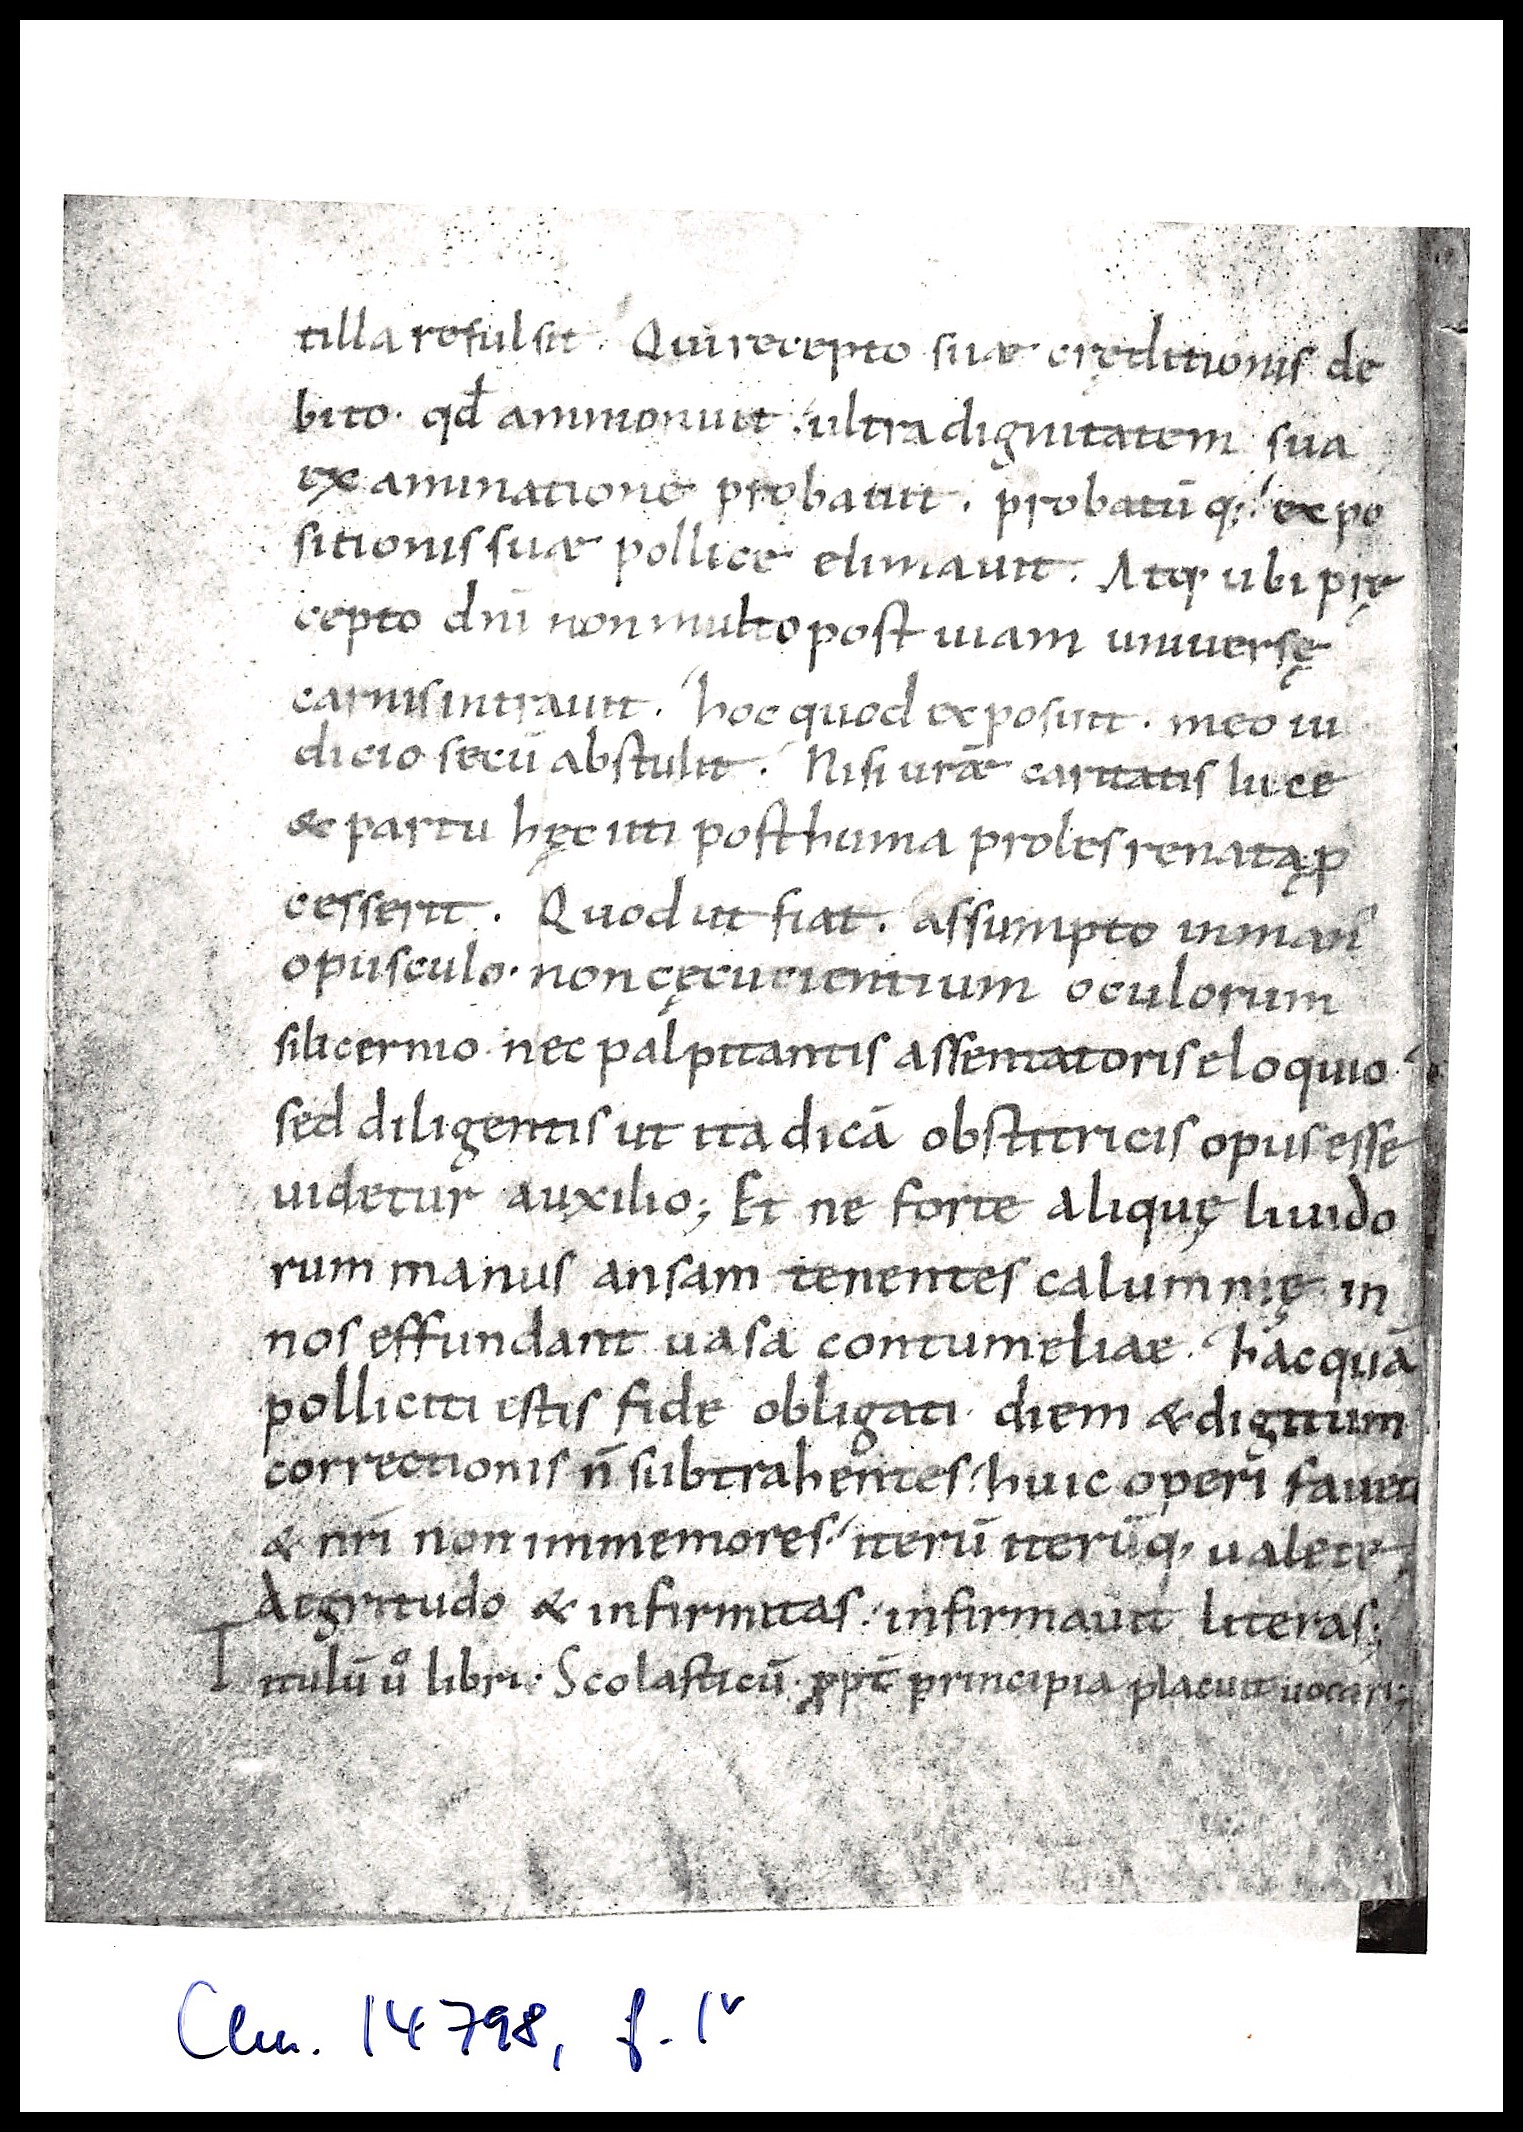 tilla refulsit. Qui recepto suae cręditionis de
bito. qđ ammonuit. ultra dignitatem sua
examinatione probauit. probatū q; expo
sitionis suae pollice elimauit. Atq; ubi pię
cepto dn̄i non multo post uiam uniuersę
carnis intrauit. hoc quod exposuit. meo iu
dicio secū abstulit. Nisi ur̄ae caritatis luce
& partu hęc uti posthuma proles renata ꝓ
cesserit. Quod ut fiat. assumpto in man̄
opusculo. non cęcucientium oculorum
silicernio. nec palpitantis assentatoris eloquio.
sed diligentis ut ita dicā obstitricis opus esse
uidetur auxilio; Et ne forte aliquę liuido
rum manus ansam tenentes calumnię in
nos effundant uasa contumeliae. hac quā
polliciti estis fide obligati. diem & digitum
correctionis n̄ subtrahentes. huic operi fauete
& nr̄i non immemores. iterū iterūq; ualete;
Aegritudo & infirmitas. infirmauit literas;
Titulū ů libri. Scolasticū. ꝓpt̄ principia placuit uocari;
Clm. 14798, f. 1ᵛ